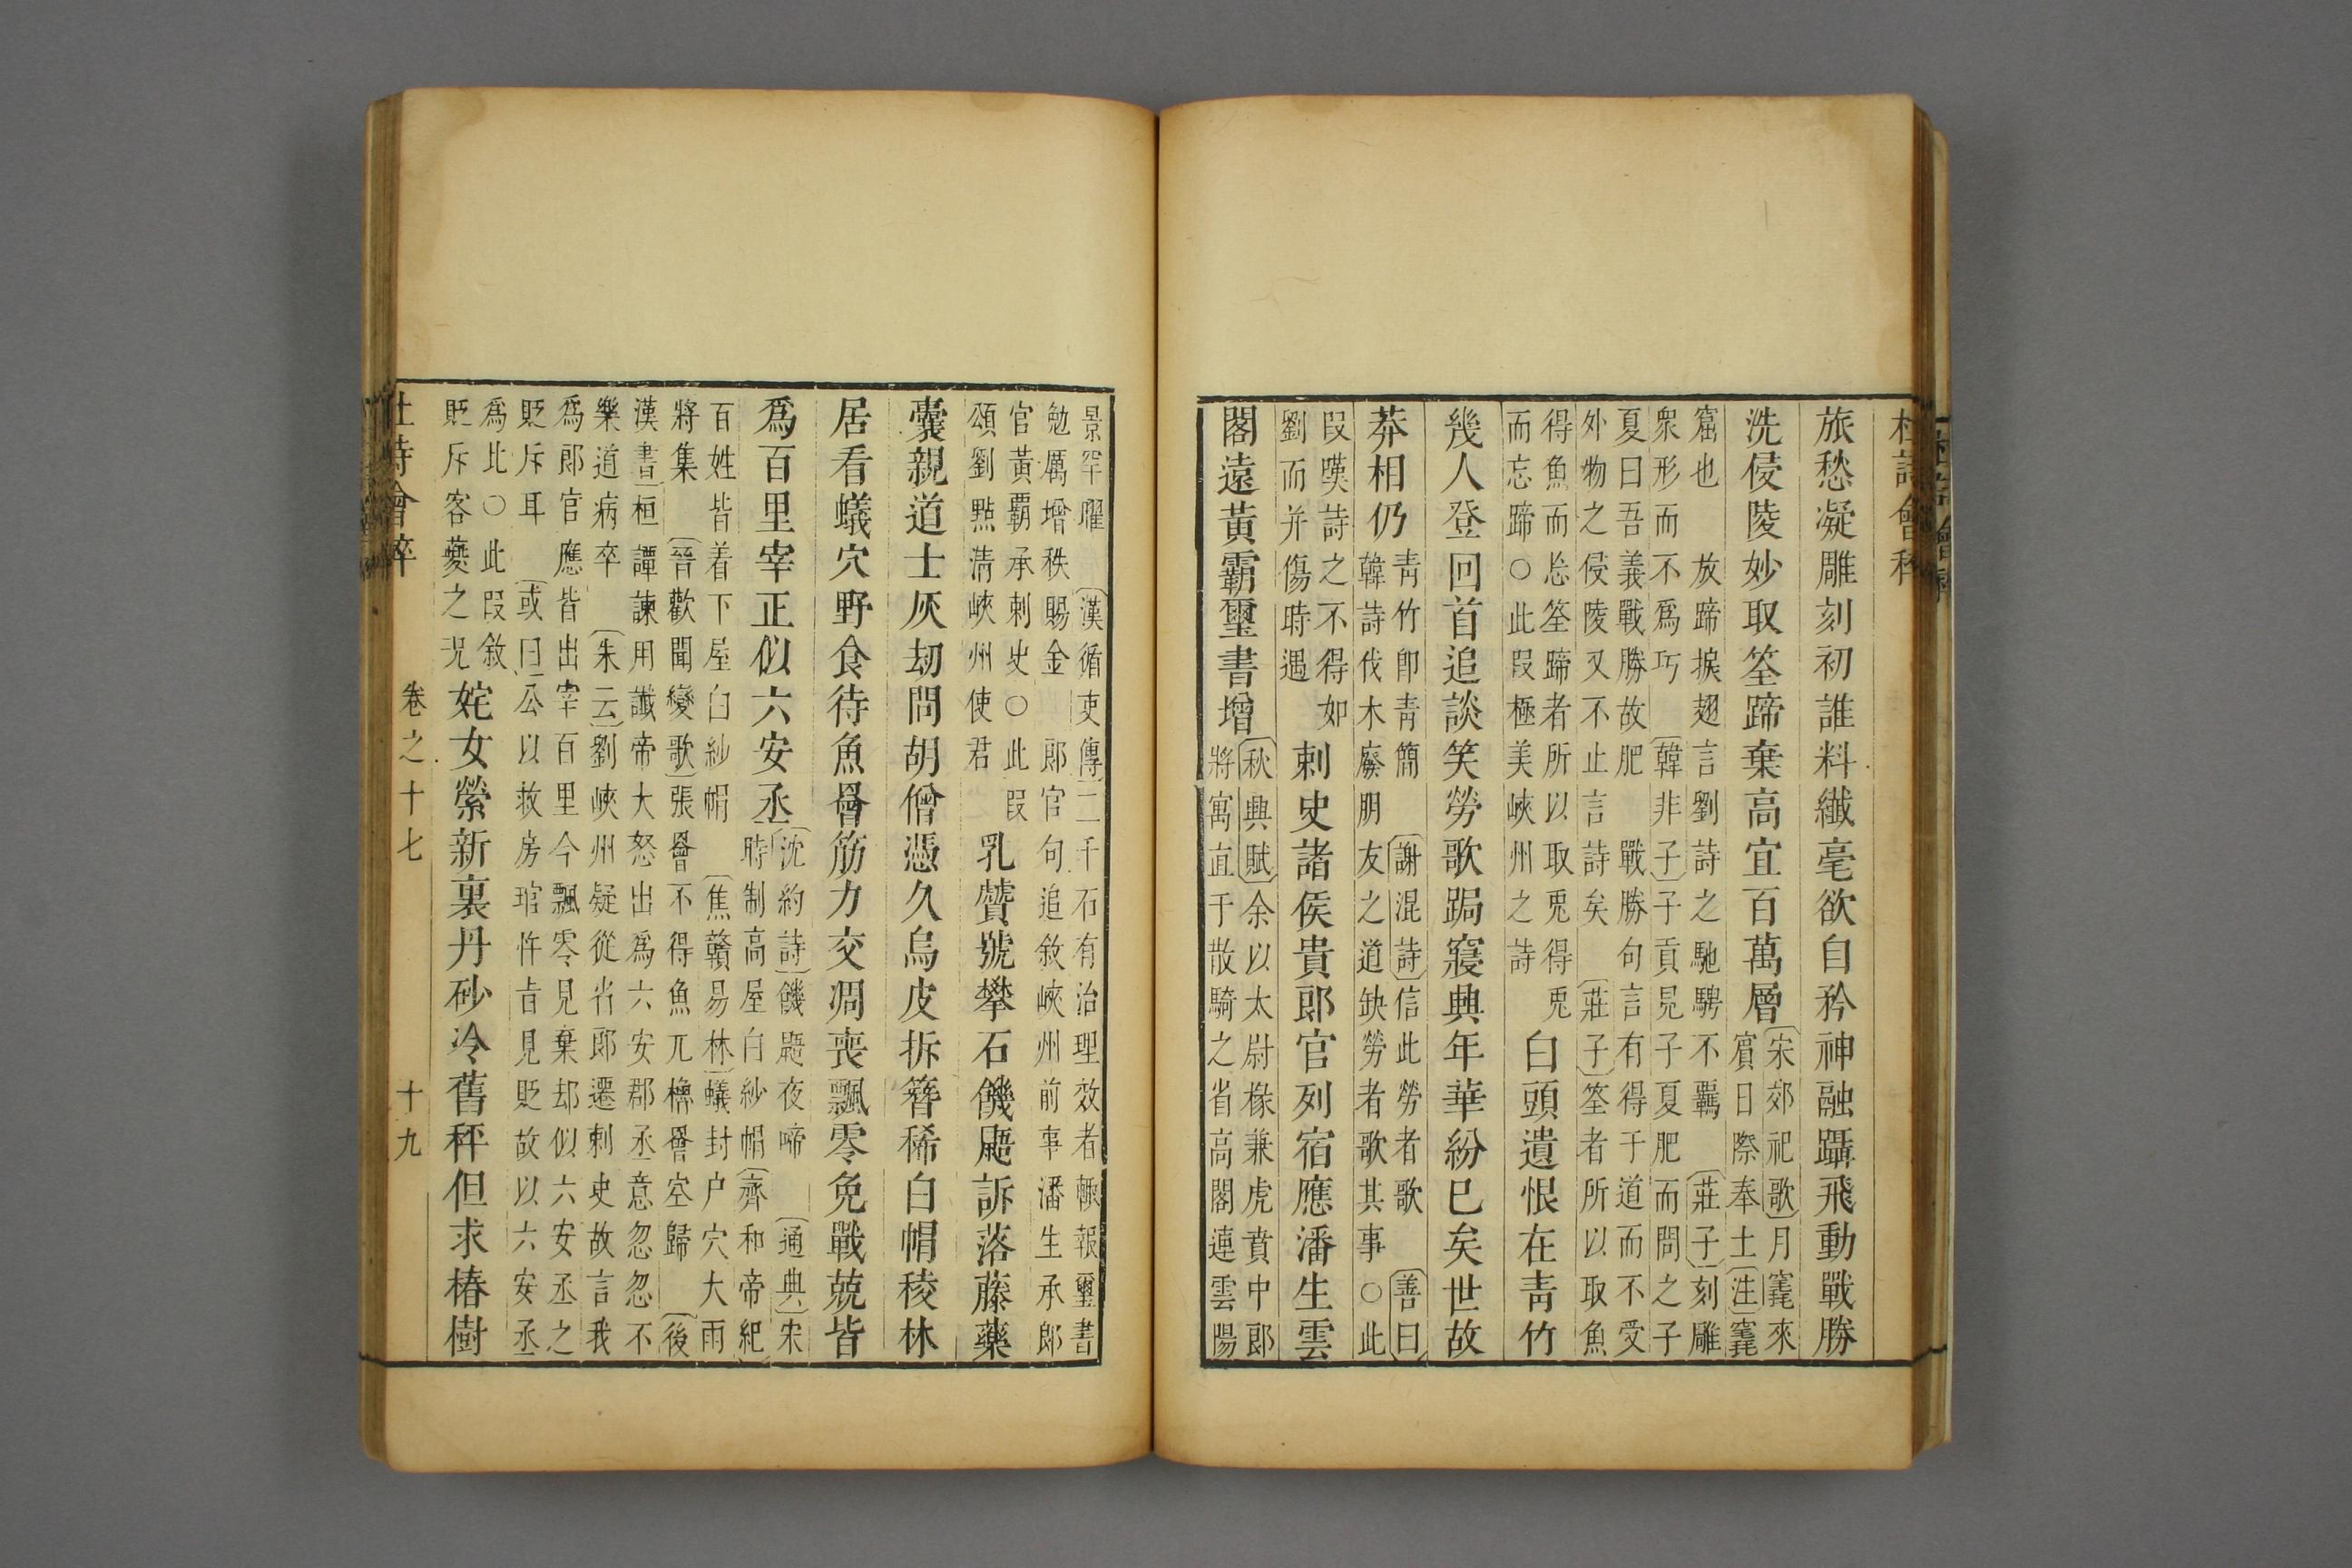 杜詩會稡
旅愁凝雕刻初誰料纖毫欲自矜神融躡飛動戰勝
洗侵陵妙取筌蹄棄高宜百萬層
宋郊祀歌月竁來
賓日際奉土注竁
窟也 放蹄捩翅言劉詩之馳騁不羈 莊子刻雕
衆形而不為巧 韓非子子貢見子夏肥而問之子
夏曰吾義戰勝故肥 戰勝句言有得于道而不受
外物之侵陵又不止言詩矣 莊子筌者所以取魚
得魚而忘筌蹄者所以取兎得兎
而忘蹄○此段極美峽州之詩
白頭遺恨在靑竹
幾人登回首追談笑勞歌跼寢興年華紛巳矣世故
莽相仍
靑竹卽靑簡 謝混詩信此勞者歌 善曰
韓詩伐木廢朋友之道缺勞者歌其事○此
段嘆詩之不得如
劉而并傷時遇
刺史諸侯貴郞官列宿應潘生雲
閣遠黃霸璽書增
秋興賦余以太尉椽兼虎賁中郎
將寓直于散騎之省高閣連雲陽
景罕曜 漢循吏傳二千石有治理效者輒報璽書
勉厲增秩賜金 郎官句追敘峽州前事潘生承郎
官黃覇承刺史○此段
頌劉㸃清峽州使君
乳贙號攀石饑鼯訴落藤藥
囊親道士灰劫問胡僧憑久烏皮拆簪稀白帽稜林
居看蟻穴野食待魚罾筋力交凋喪飄零免戰兢皆
為百里宰正似六安丞
沈約詩饑鼯夜啼 通典宋
時制高屋白紗帽 齊和帝紀
百姓皆着下屋白紗帽 焦贛易林蟻封户穴大雨
將集 晉歡聞變歌張罾不得魚兀櫓罾空歸 後
漢書桓譚諫用讖帝大怒出為六安郡丞意忽忽不
樂道病卒 朱云劉峽州疑從省郎遷刺史故言我
為郎官應皆出宰百里今飄零見棄却似六安丞之
貶斥耳 或曰公以救房琯忤旨見貶故以六安丞
為比○此段敘
貶斥客夔之况
姹女縈新裏丹砂冷舊秤但求椿樹
杜詩會稡 卷之十七 十九